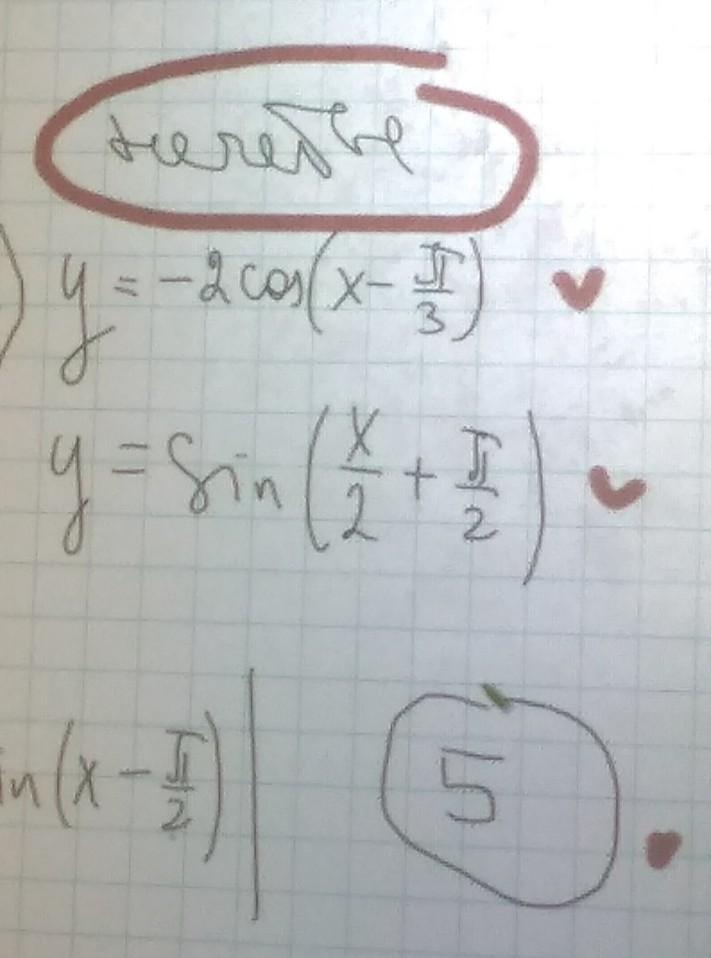 нечетве
) y = -2cos(x - π/3)
y = Sin(x/2 + π/2)
in(x - π/2)| 5